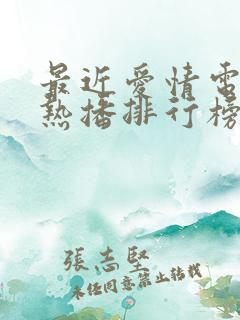 最近愛情電
熱播排行榜
張志堅
未经同意禁止转载